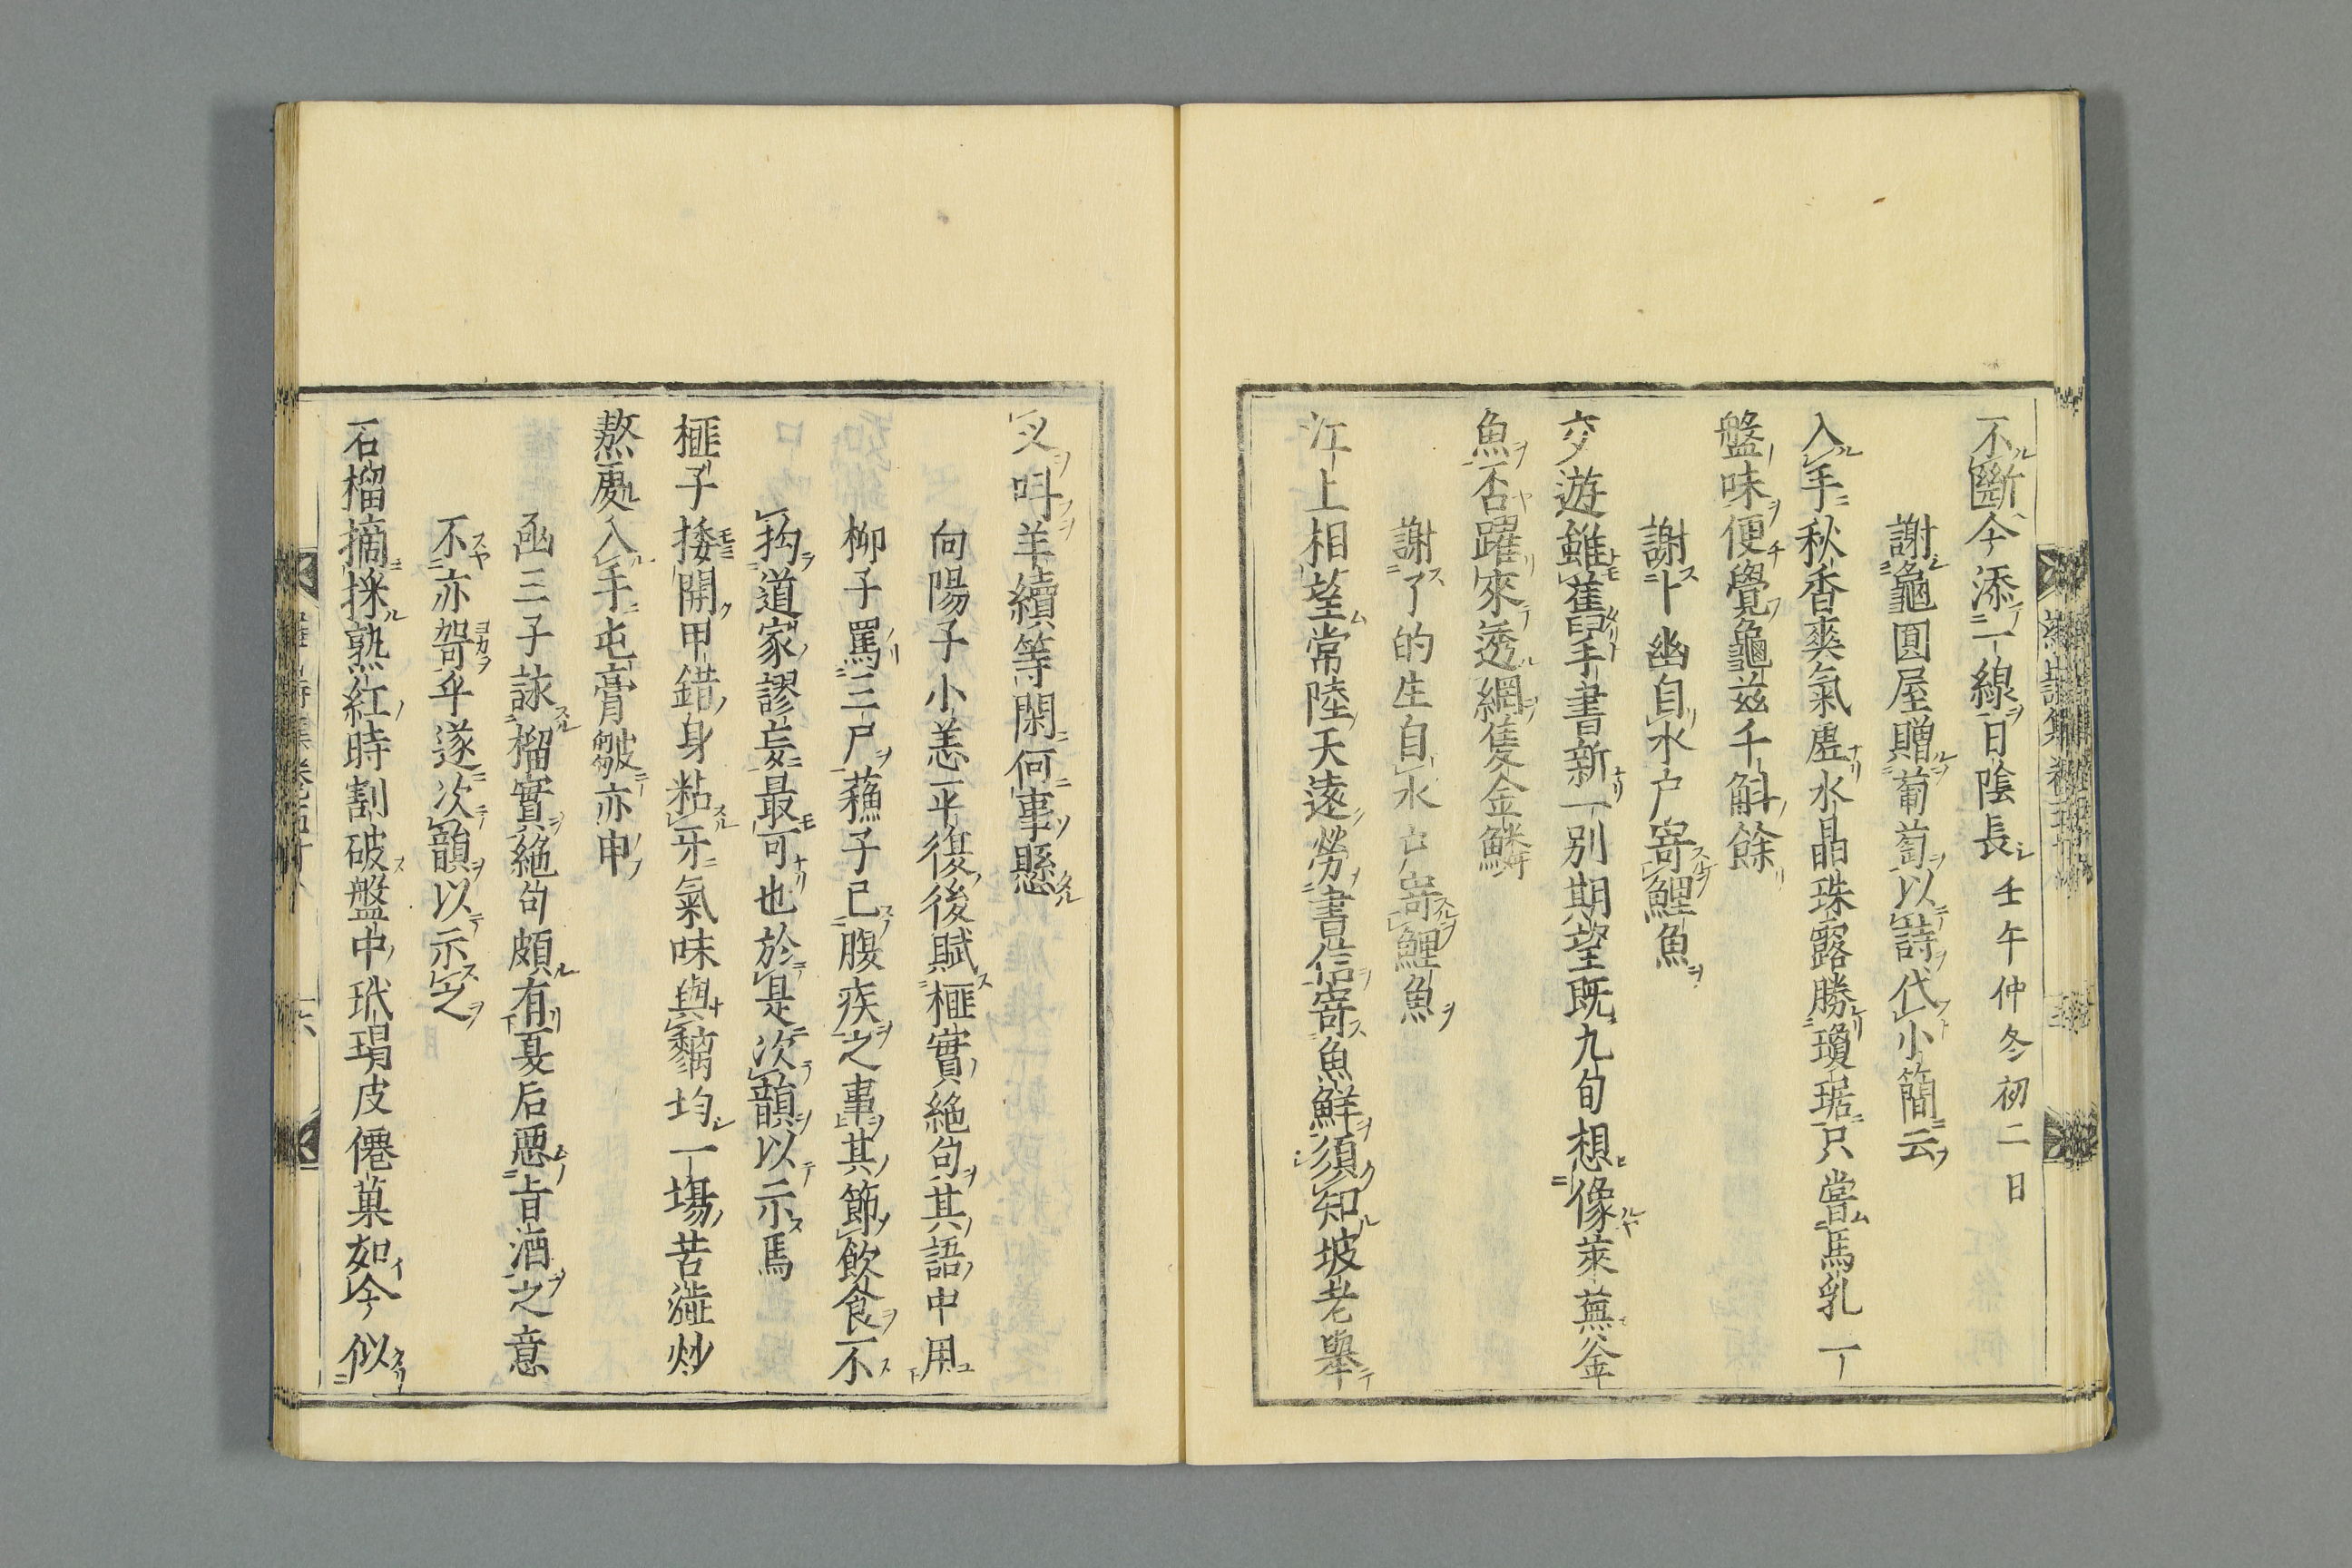 不斷今添一線日陰長 壬午仲冬初二日
謝龜圓屋贈葡萄以詩代小簡云
入手秋香爽氣虛水晶珠露勝瓊琚只嘗馬乳一
盤味便覺龜茲千斛餘
謝卜幽自水户寄鯉魚
交遊雖舊手書新一別期望既九旬想像萊蕪釜
魚否躍來透網隻金鱗
謝了的生自水户寄鯉魚
江上相望常陸天遠勞書信寄魚鮮須知坡老舉
網
叉呌羊續等閑何事懸
向陽子小恙平復後賦榧實絶句其語中用
柳子罵三尸蘓子已腹疾之事其節飲食不
拘道家謬妄最可也於是次韻以示焉
榧子捼開甲錯身粘牙氣味與䵑均一塲苦澁炒
熬處入手屯膏皺亦申
函三子詠榴實絶句頗有夏后惡旨酒之意
不亦哿乎遂次韻以示之
石榴摘採熟紅時割破盤中玳瑁皮僊菓如今似